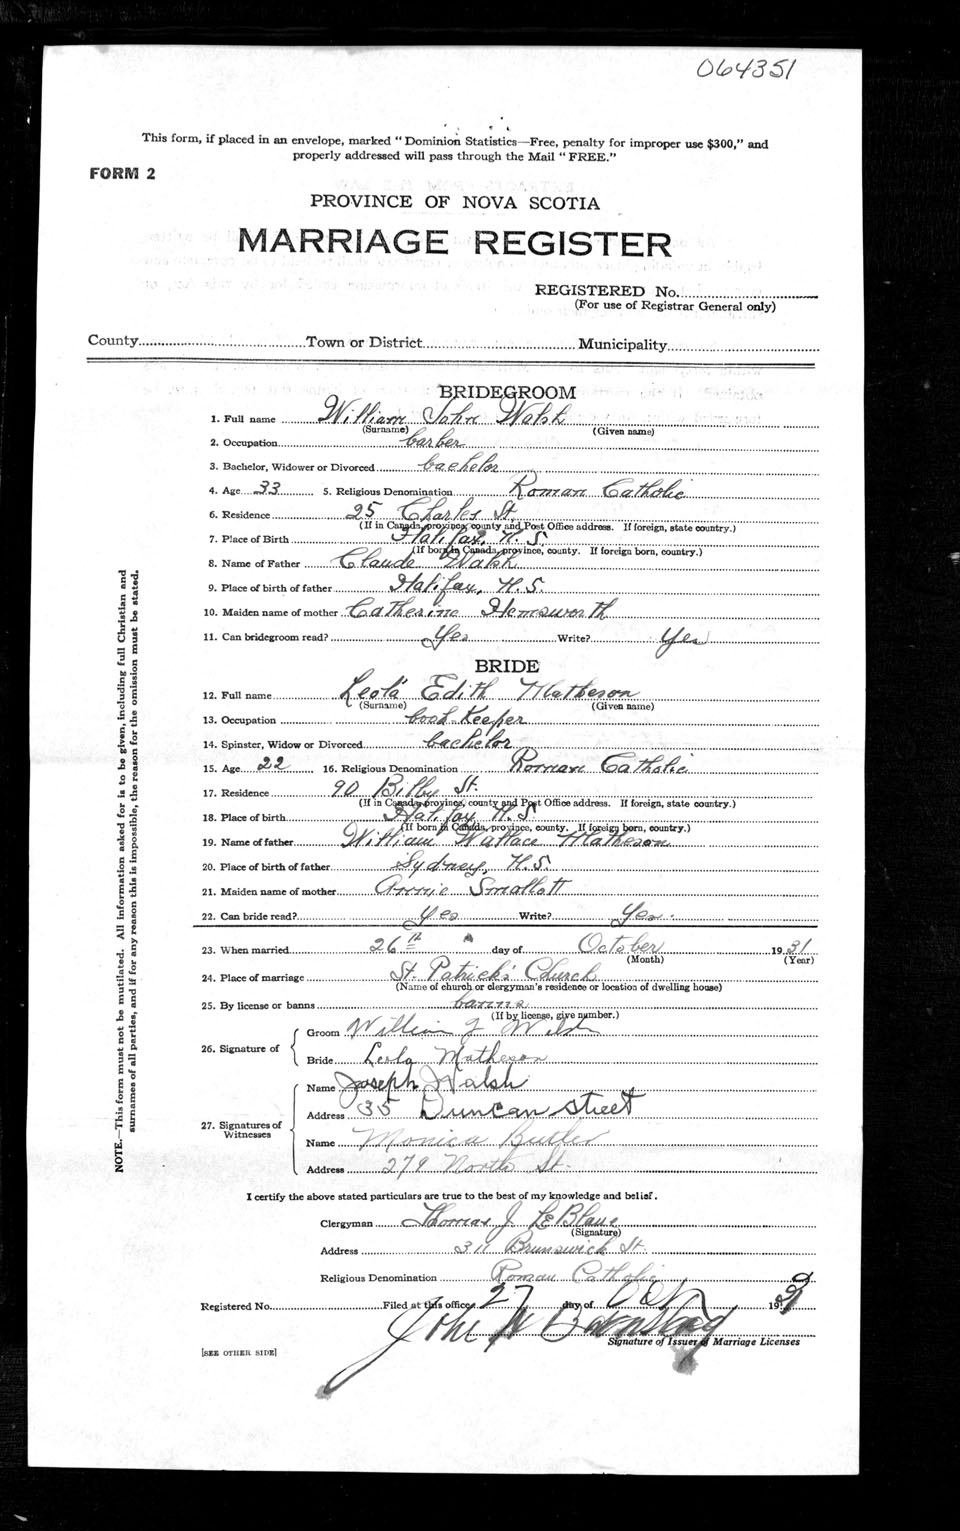 064351
This form, if placed in an envelope, marked "Dominion Statistics—Free, penalty for improper use $300," and
properly addressed will pass through the Mail "FREE."
FORM 2
PROVINCE OF NOVA SCOTIA
MARRIAGE REGISTER
REGISTERED No.
(For use of Registrar General only)
County Town or District Municipality
BRIDEGROOM
1. Full name William John Walsh
(Surname) (Given name)
2. Occupation barber
3. Bachelor, Widower or Divorced bachelor
4. Age 33 5. Religious Denomination Roman Catholic
6. Residence 25 Charles St.
(If in Canada, province, county and Post Office address. If foreign, state country.)
7. Place of Birth Halifax, N.S.
(If born in Canada, province, county. If foreign born, country.)
8. Name of Father Claude Walsh
9. Place of birth of father Halifax, N.S.
10. Maiden name of mother Catherine Hemsworth
11. Can bridegroom read? Yes Write? Yes
BRIDE
12. Full name Leola Edith Matheson
(Surname) (Given name)
13. Occupation book-Keeper
14. Spinster, Widow or Divorced bachelor
15. Age 22 16. Religious Denomination Roman Catholic
17. Residence 90 Bilby St.
(If in Canada, province, county and Post Office address. If foreign, state country.)
18. Place of birth Halifax N.S.
(If born in Canada, province, county. If foreign born, country.)
19. Name of father William Wallace Matheson
20. Place of birth of father Sydney, N.S.
21. Maiden name of mother Annie Smallott
22. Can bride read? Yes Write? Yes.
23. When married 26th day of October 1931
(Month) (Year)
24. Place of marriage St. Patrick's Church
(Name of church or clergyman's residence or location of dwelling house)
25. By license or banns banns
(If by license, give number.)
26. Signature of
Groom William J Walsh
Bride Leola Matheson
27. Signatures of Witnesses
Name Joseph Walsh
Address 35 Duncan street
Name Monica Butler
Address 279 North St.
I certify the above stated particulars are true to the best of my knowledge and belief.
Clergyman Thomas J. LeBlanc
(Signature)
Address 311 Brunswick St.
Religious Denomination Roman Catholic
Registered No. Filed at this office 27 day of Oct 19
John
Signature of Issuer of Marriage Licenses
[SEE OTHER SIDE]
NOTE.—This form must not be mutilated. All information asked for is to be given, including full Christian and
surnames of all parties, and if for any reason this is impossible, the reason for the omission must be stated.